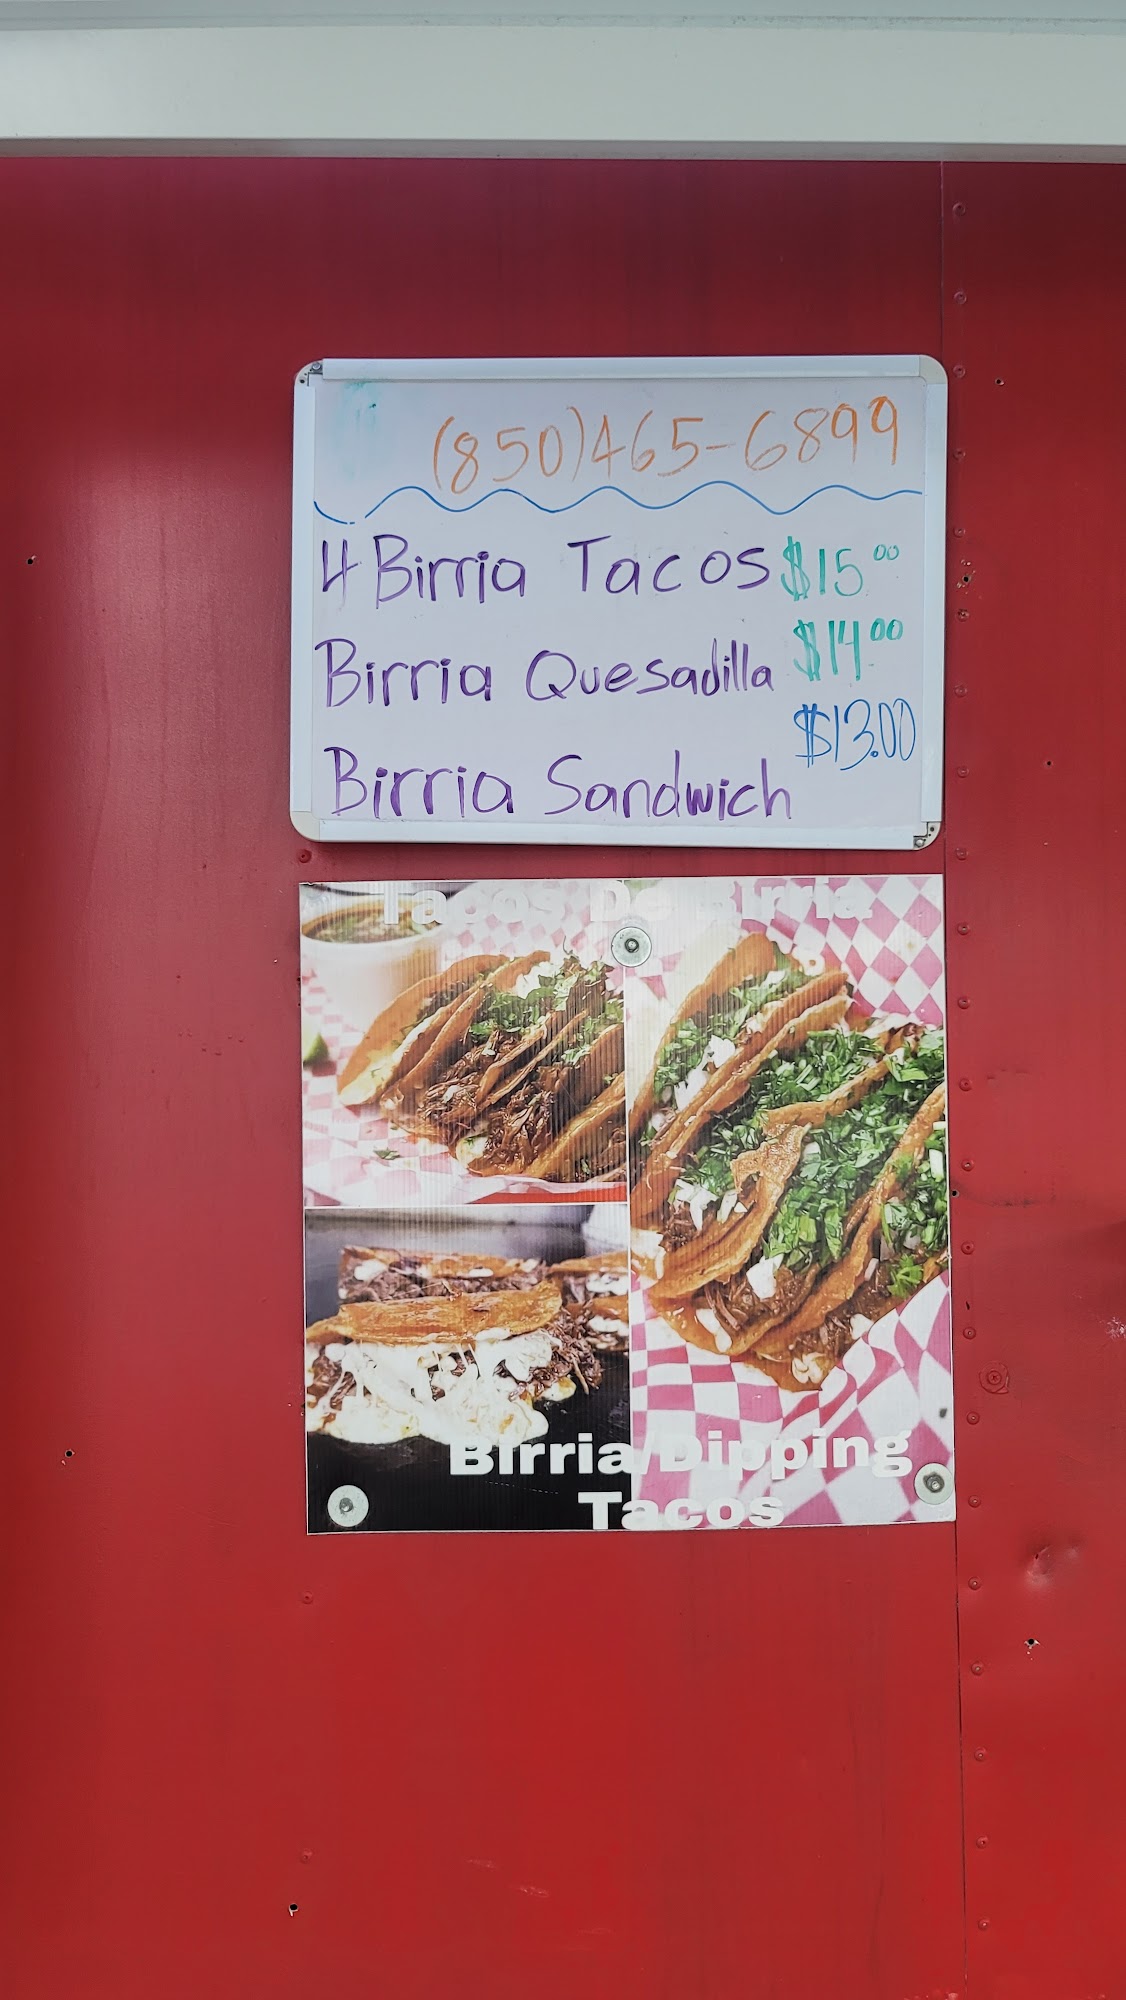 (850)465-6899
4 Birria Tacos $15.00
Birria Quesadilla $14.00
Birria Sandwich $13.00
Tacos De Birria
Birria/Dipping
Tacos